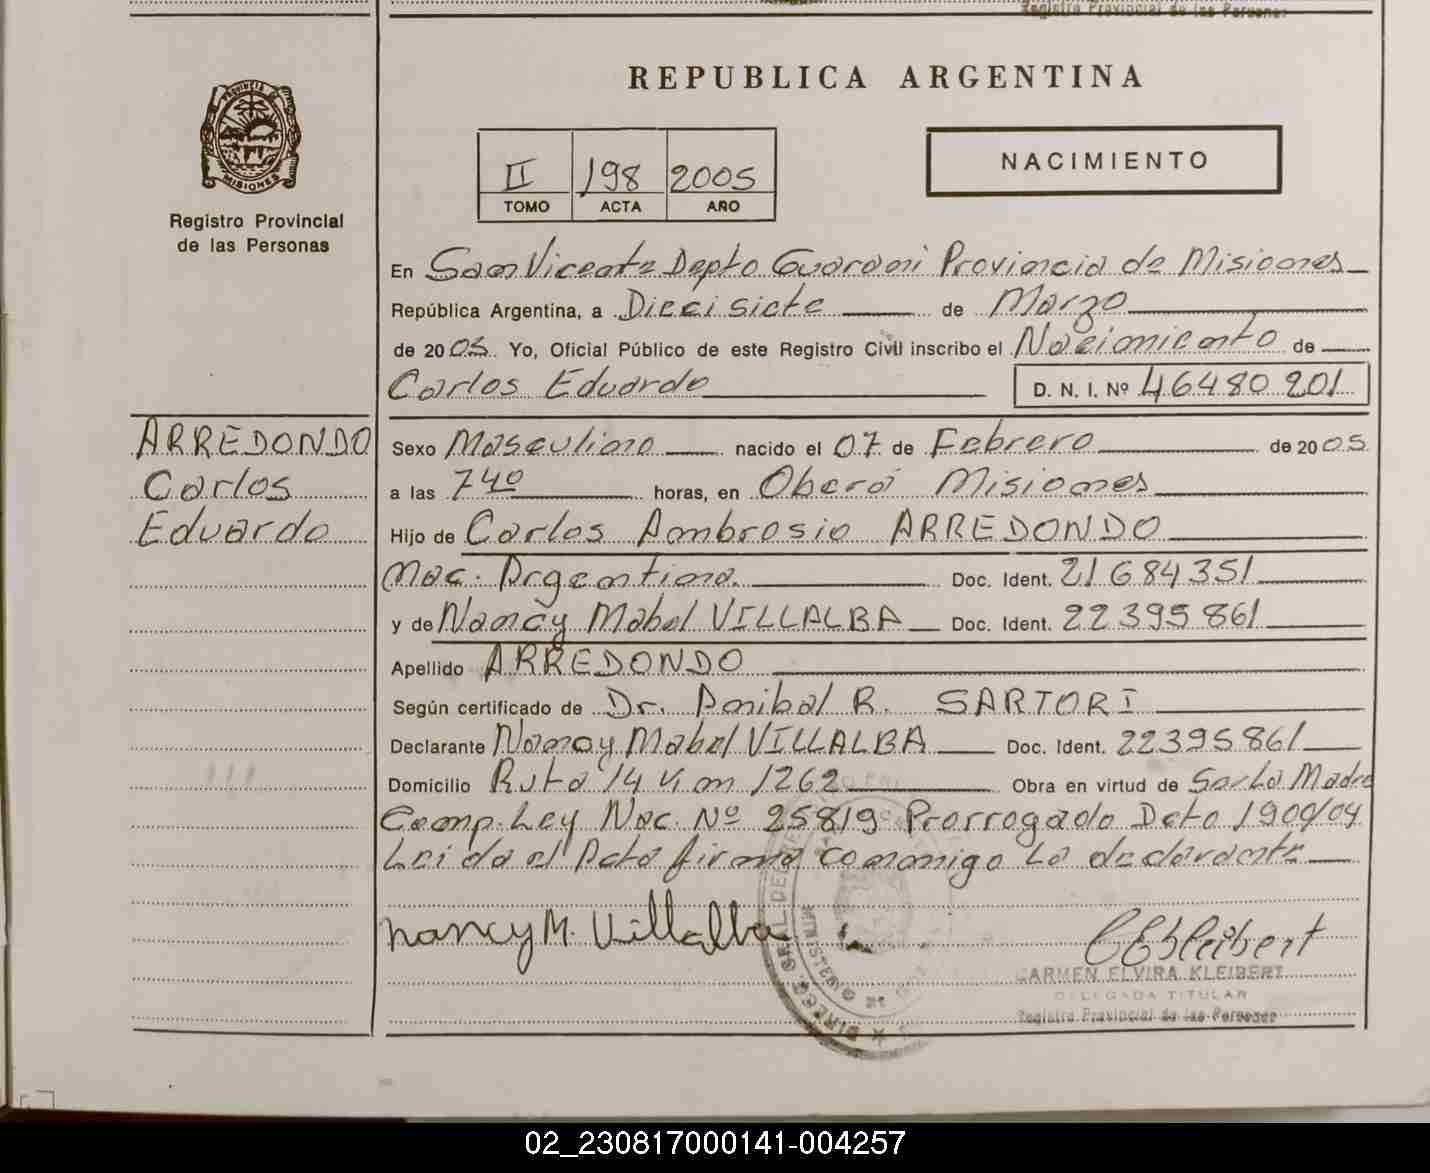 Registro Provincial de las Personas
PROVINCIA DE
MISIONES
Registro Provincial
de las Personas
REPUBLICA ARGENTINA
II 198 2005
TOMO ACTA AÑO
NACIMIENTO
En San Vicente Depto Guarani Provincia de Misiones
República Argentina, a Diecisiete de Marzo
de 2005 Yo, Oficial Público de este Registro Civil inscribo el Nacimiento de
Carlos Eduardo D. N. I. Nº 46480201
ARREDONDO
Carlos
Eduardo
Sexo Masculino nacido el 07 de Febrero de 2005
a las 7 40 horas, en Oberá Misiones
Hijo de Carlos Ambrosio ARREDONDO
Nac. Argentina. Doc. Ident. 21684351
y de Nancy Mabel VILLALBA Doc. Ident. 22395861
Apellido ARREDONDO
Según certificado de Dr. Anibal R. SARTORI
Declarante Nancy Mabel VILLALBA Doc. Ident. 22395861
Domicilio Ruta 14 Km 1262 Obra en virtud de ser La Madre
Comp. Ley Nac. Nº 25819 Prorrogado Dcto 1900/04
Leida el Acta firma conmigo La declarante
Nancy M. Villalba
CEKleibert
CARMEN ELVIRA KLEIBERT
DELEGADA TITULAR
Registro Provincial de las Personas
02_230817000141-004257